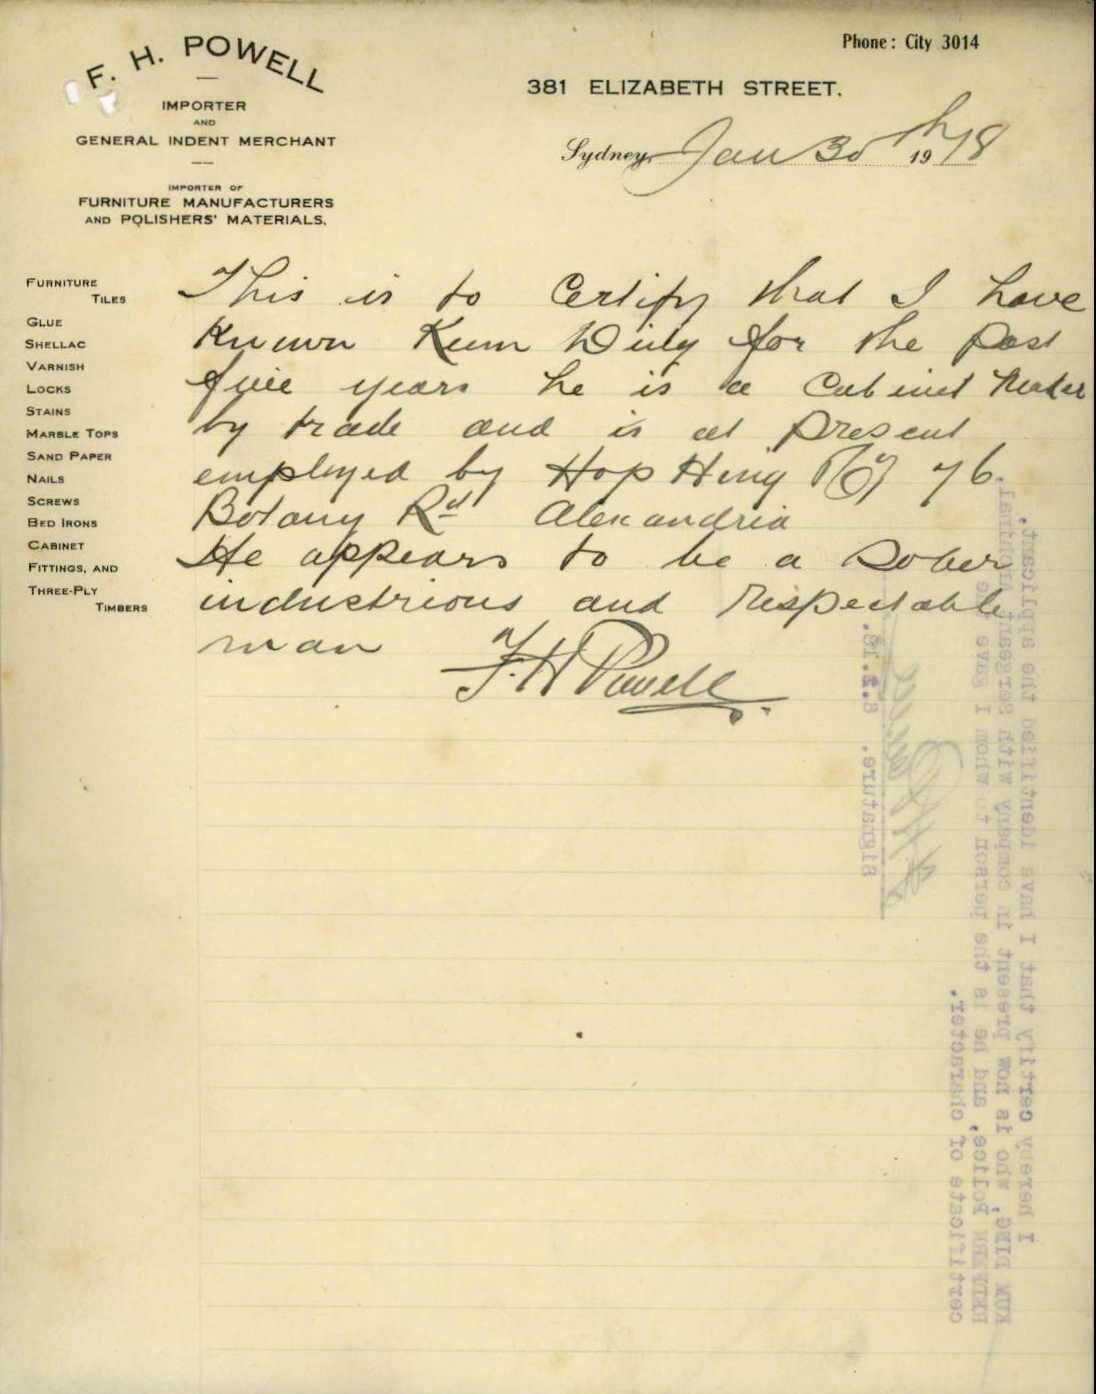 F. H. POWELL
IMPORTER
AND
GENERAL INDENT MERCHANT
IMPORTER OF
FURNITURE MANUFACTURERS
AND POLISHERS' MATERIALS.
Phone: City 3014
381 ELIZABETH STREET.
Sydney, Jan 30th 1918
FURNITURE
TILES
GLUE
SHELLAC
VARNISH
LOCKS
STAINS
MARBLE TOPS
SAND PAPER
NAILS
SCREWS
BED IRONS
CABINET
FITTINGS, AND
THREE-PLY
TIMBERS
This is to Certify that I have
Known Kum for the past
five years he is a Cabinet Maker
by trade and is at present
employed by Hop Hing 76
Botany Rd Alexandria
He appears to be a Sober
industrious and respectable
man F. H Powell
I hereby certify that I have identified the applicant,
KUM DING, who is now present in company with Sergeant
REDFERN Police, and he is the person to whom I gave the
certificate of character.
Signature. 8.2.18.